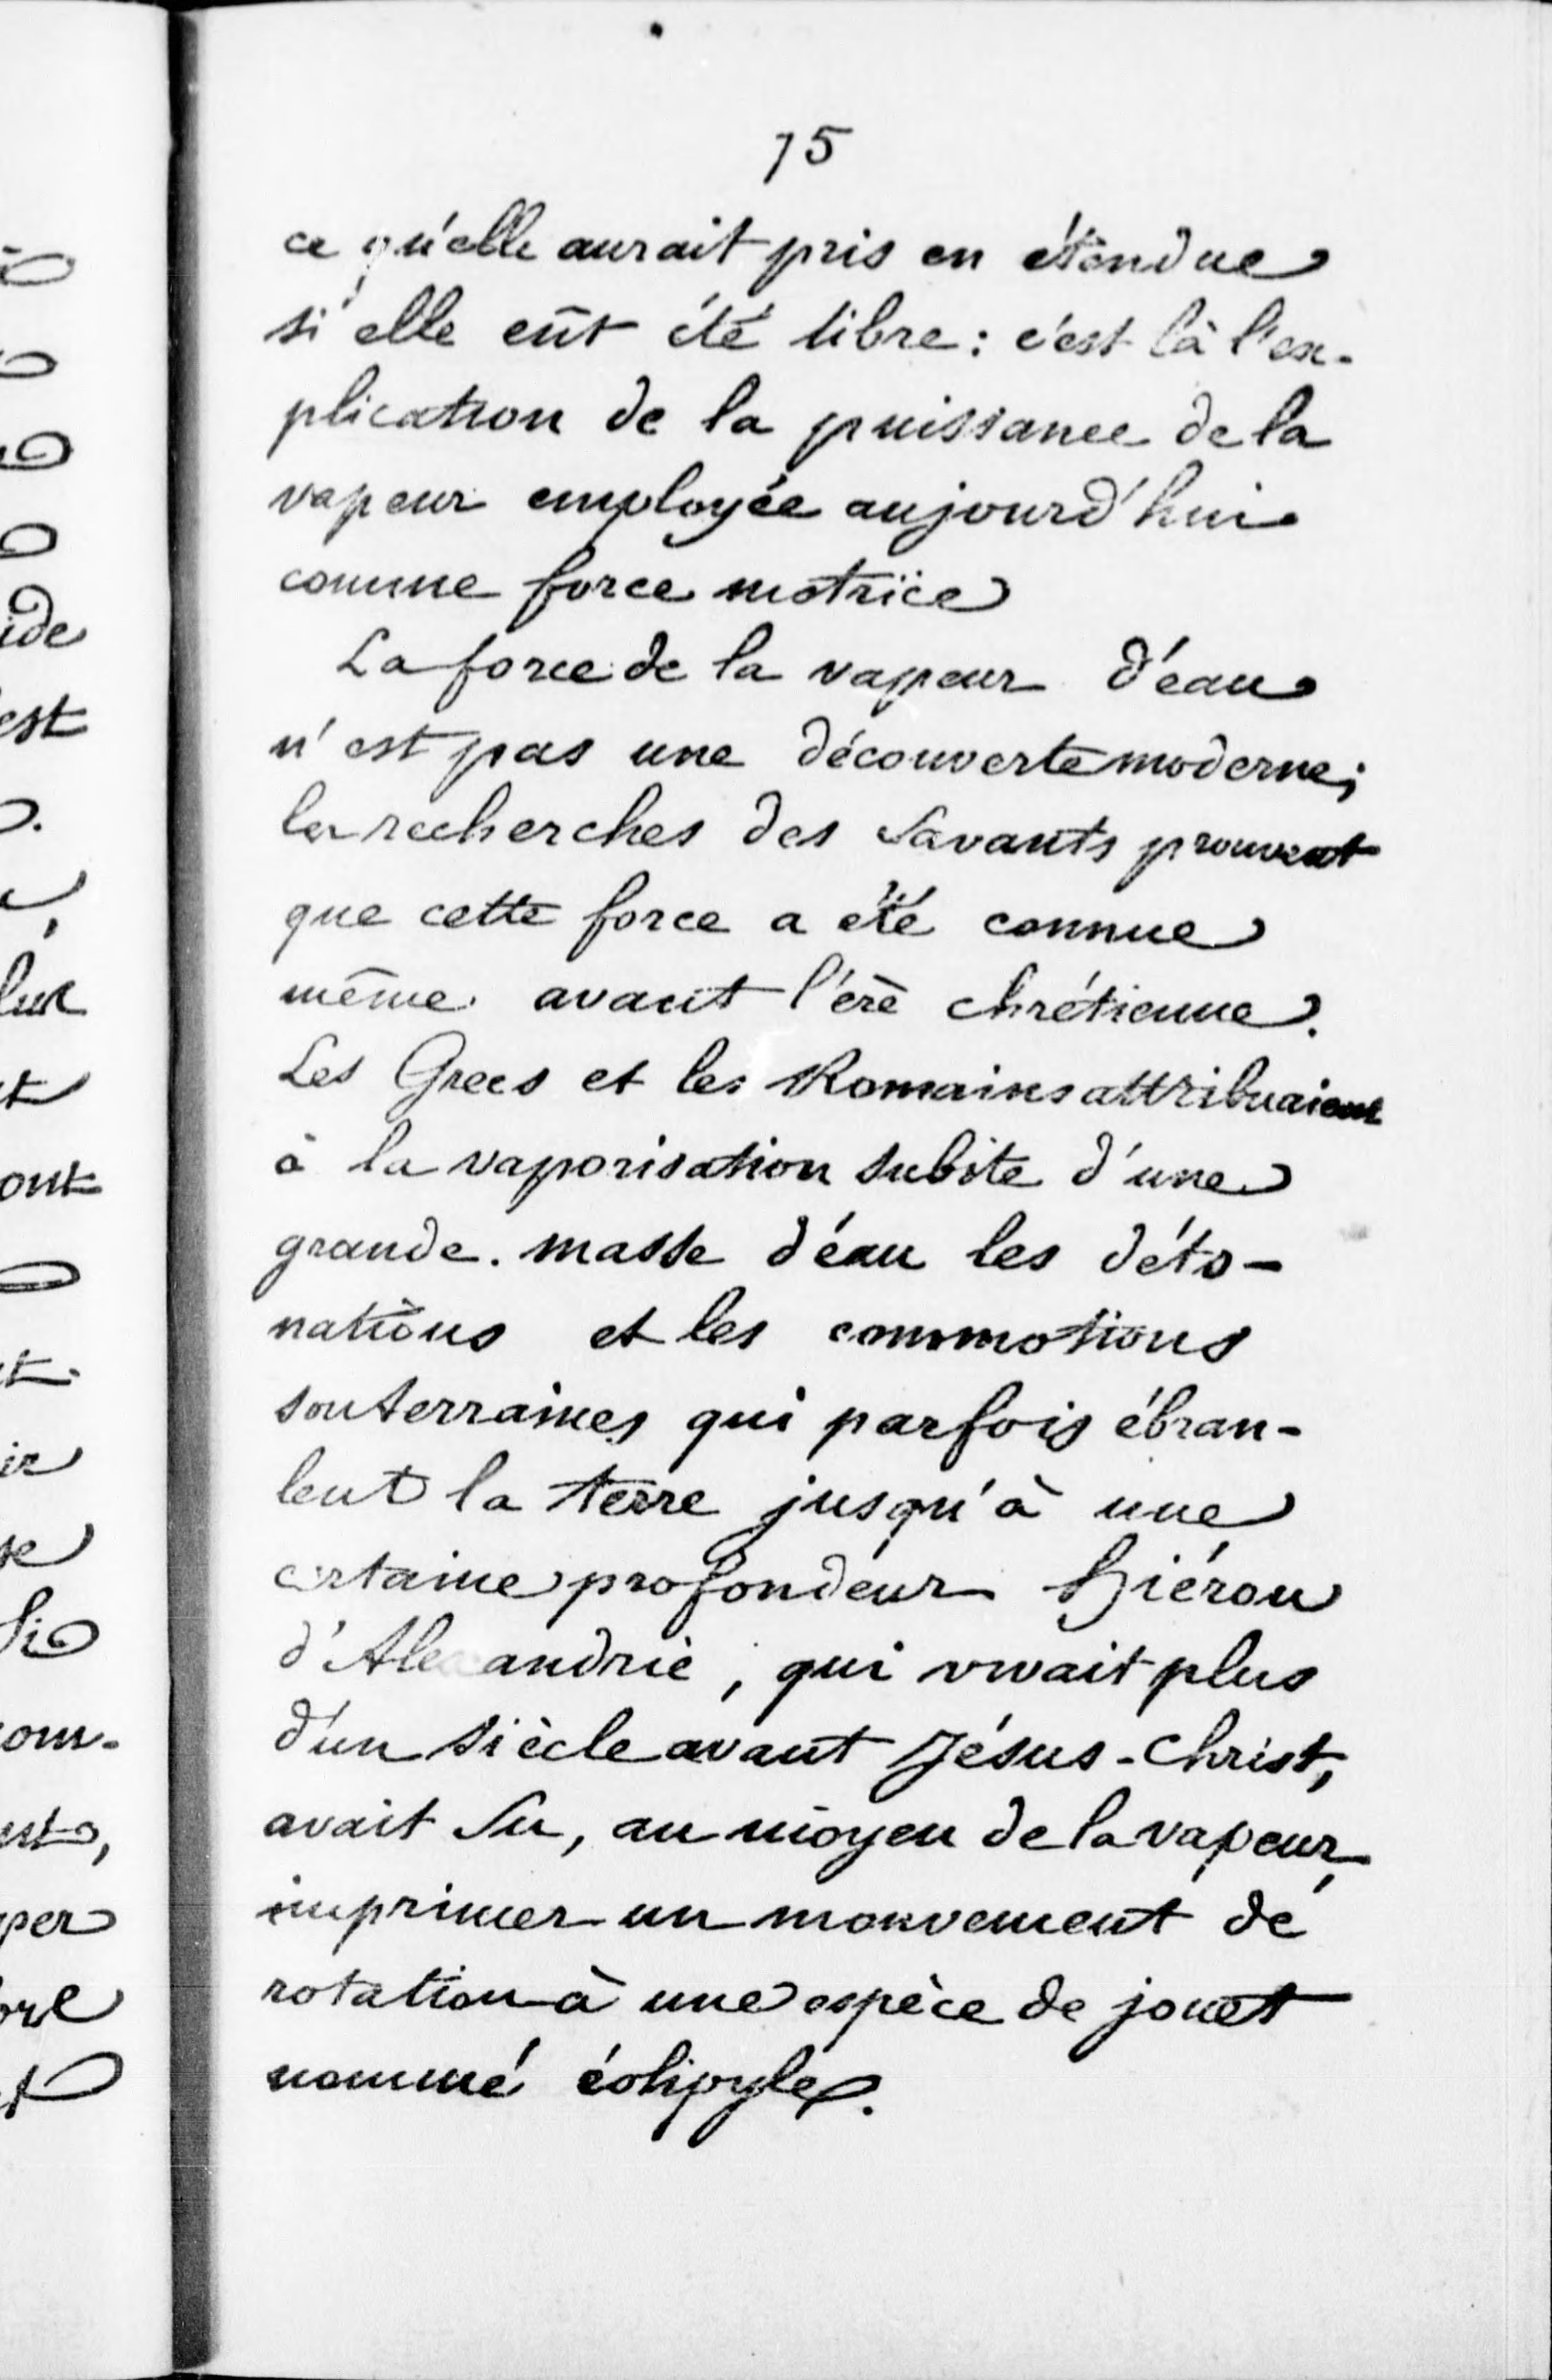 75
ce qu'elle aurait pris en étendue
si elle eût été libre : c'est là l'ex-
plication de la puissance de la
vapeur employée aujourd'hui
comme force motrice
La force de la vapeur d'eau
n'est pas une découverte moderne ;
les recherches des Savants prouvent
que cette force a été connue
même avant l'ère chrétienne.
Les Grecs et les Romains attribuaient
à la vaporisation subite d'une
grande masse d'eau les déto-
nations et les commotions
souterraines qui parfois ébran-
lent la terre jusqu'à une
certaine profondeur Hiéron
d'Alexandrie, qui vivait plus
d'un siècle avant Jésus-Christ,
avait su, au moyen de la vapeur,
imprimer un mouvement de
rotation à une espèce de jouet
nommé éolipyle.
ide
est
ont
om-
per